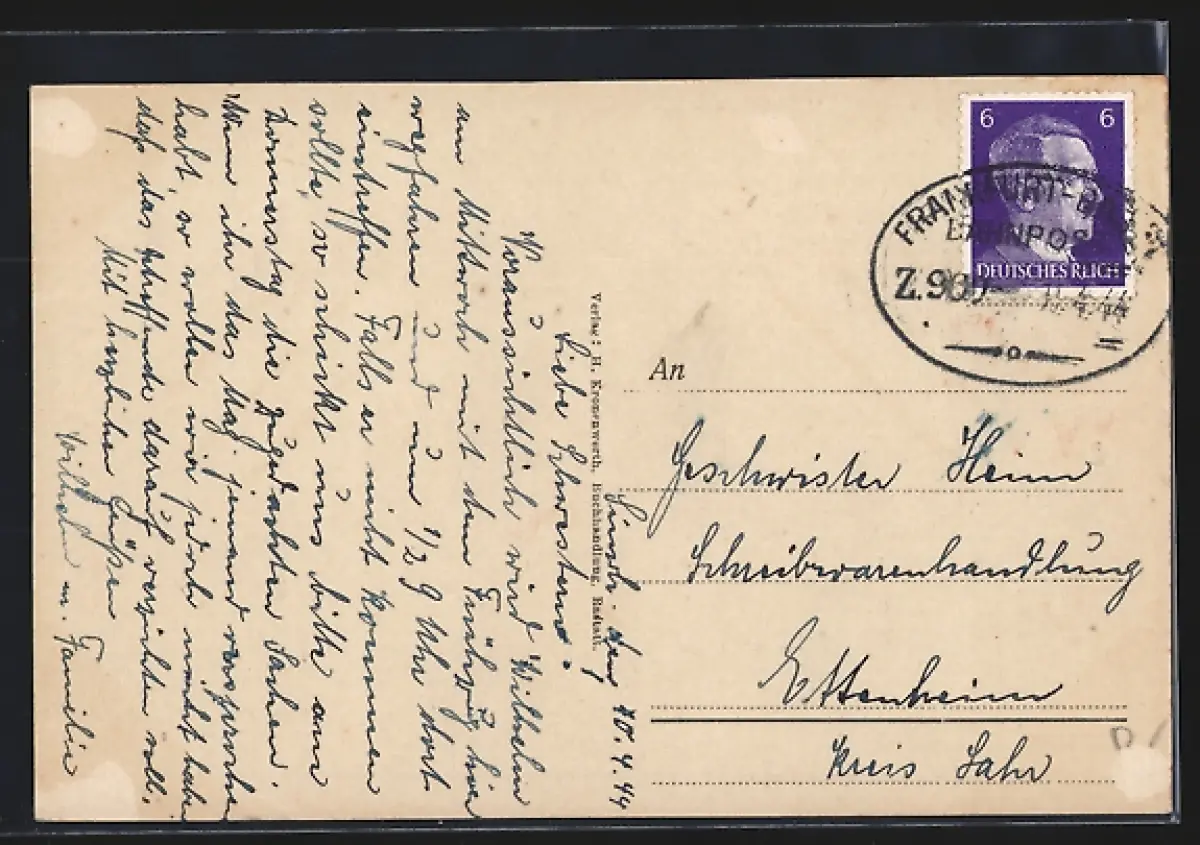 Sinzh. den 10.4.44
Liebe Schwestern!
Voraussichtlich wird Wilhelm
am Mittwoch mit dem Frühzug hier
wegfahren und um 1/2 9 Uhr dort
eintreffen. Falls er nicht kommen
sollte, so schickt uns bitte am
Donnerstag die zugedachten Sachen.
Wenn ihr das Mag jemand versprochen
habt, so wollen wir jedoch nicht haben
daß das Betreffende darauf verzichten soll.
Mit herzlichen Grüßen
Wilhelm u. Familie
Verlag: H. Kronenwerth, Buchhandlung, Rastatt.
6 6
DEUTSCHES REICH
FRANKFURT-BASEL
BAHNPOST
Z.900 11.4.44
An
Geschwister Heim
Schreibwarenhandlung
Ettenheim
Kreis Lahr